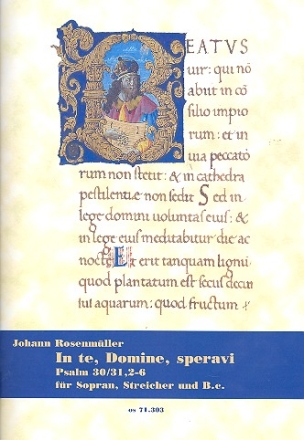 BEATVS
uir: qui nõ
abiit in cõ
silio impio
rum: et in
uia peccatoꝝ
rum non stetit: & in cathedra
pestilentiæ non sedit Sed in
lege domini uoluntas eius: &
in lege eius meditabitur die ac
nocte Et erit tanquam ligni
quod plantatum est secus decur
sus aquarum: quod fructum
Johann Rosenmüller
In te, Domine, speravi
Psalm 30/31,2-6
für Sopran, Streicher und B.c.
os 71.303